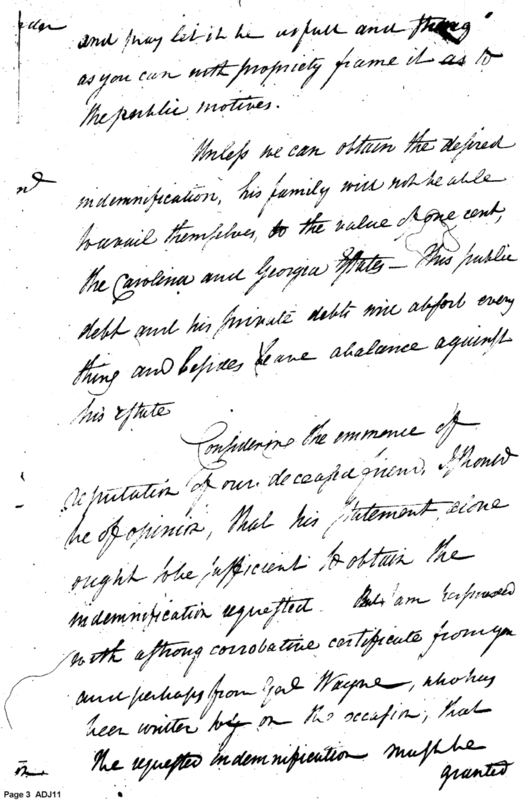 and pray let it be as full and strong
as you can with propriety frame it as to
the public motives.
Unless we can obtain the desired
indemnification, his family will not be able
to avail themselves, to the value of one cent,
the Carolina and Georgia Estates — His public
debt and his private debts will absorb every
thing and besides leave a balance against
his estate
Considering the eminence of
reputation of our deceased friend, I should
be of opinion, that his statement alone
ought to be sufficient to obtain the
indemnification requested. But I am
with a strong corrobative certificate from you
and perhaps from Genl Wayne, who has
been written to on the occasion, that
the requested indemnification must be
granted
Page 3 ADJ11